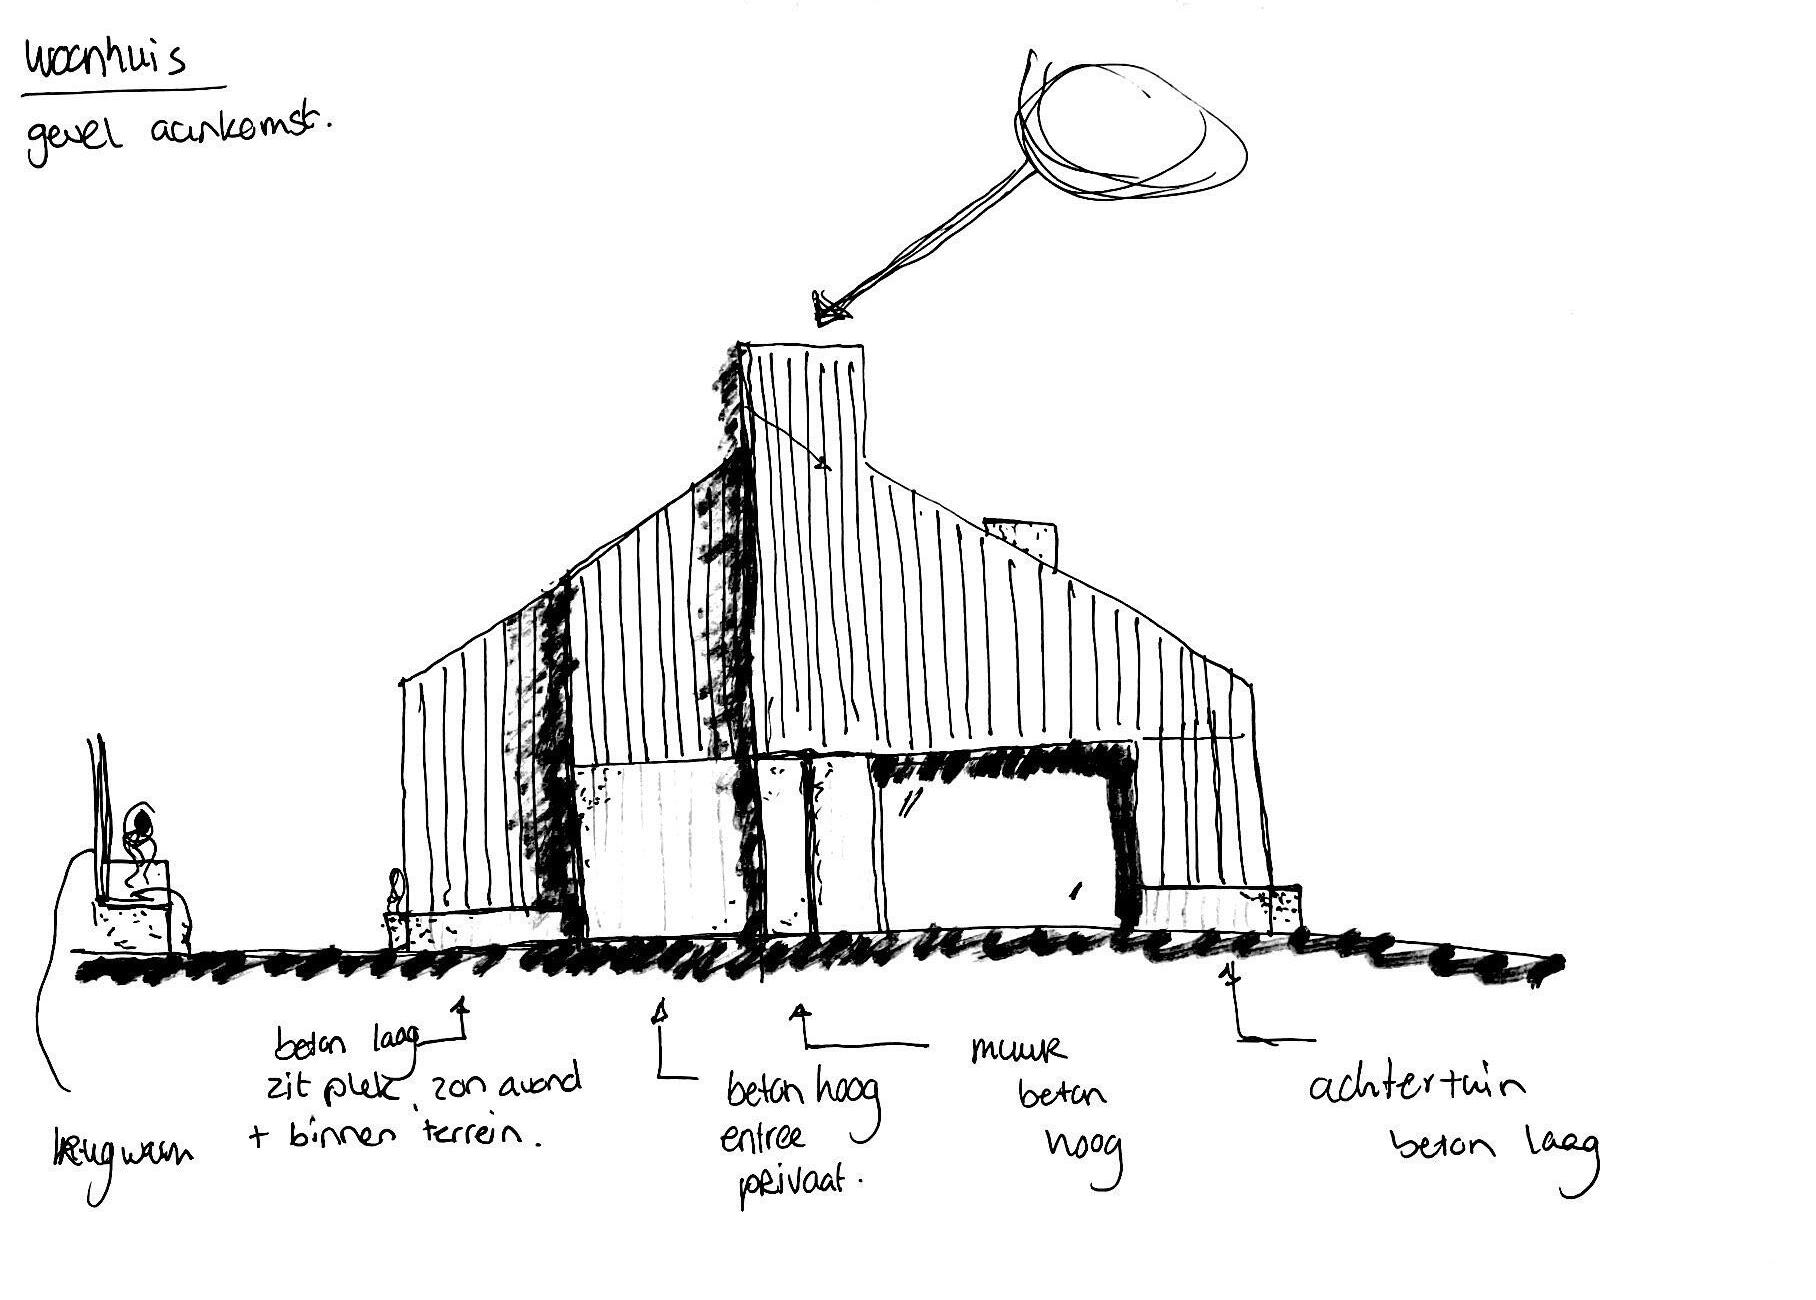 woonhuis
gevel aankomst.
beton laag
zit plek, zon avond
+ binnen terrein.
beton hoog
entree
privaat.
muur
beton
hoog
achtertuin
beton laag